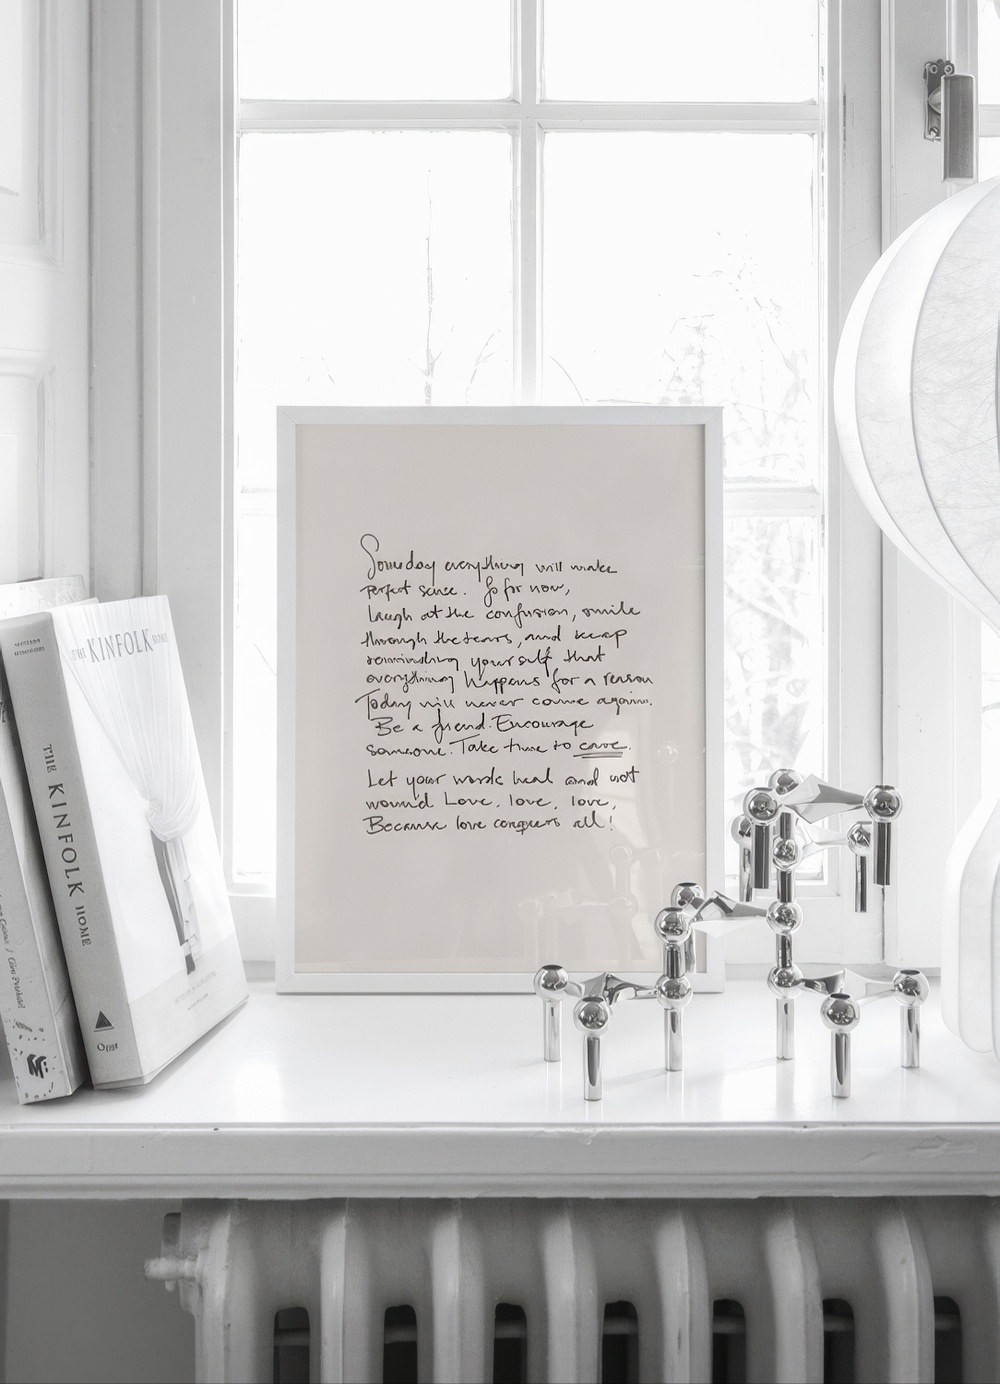 Someday everything will make
perfect sense. So for now,
laugh at the confusion, smile
through the tears, and keep
reminding yourself that
everything happens for a reason
Today will never come again.
Be a friend. Encourage
someone. Take time to care.
Let your words heal and not
wound Love, love, love,
Because love conquers all!
THE KINFOLK HOME
THE KINFOLK HOME